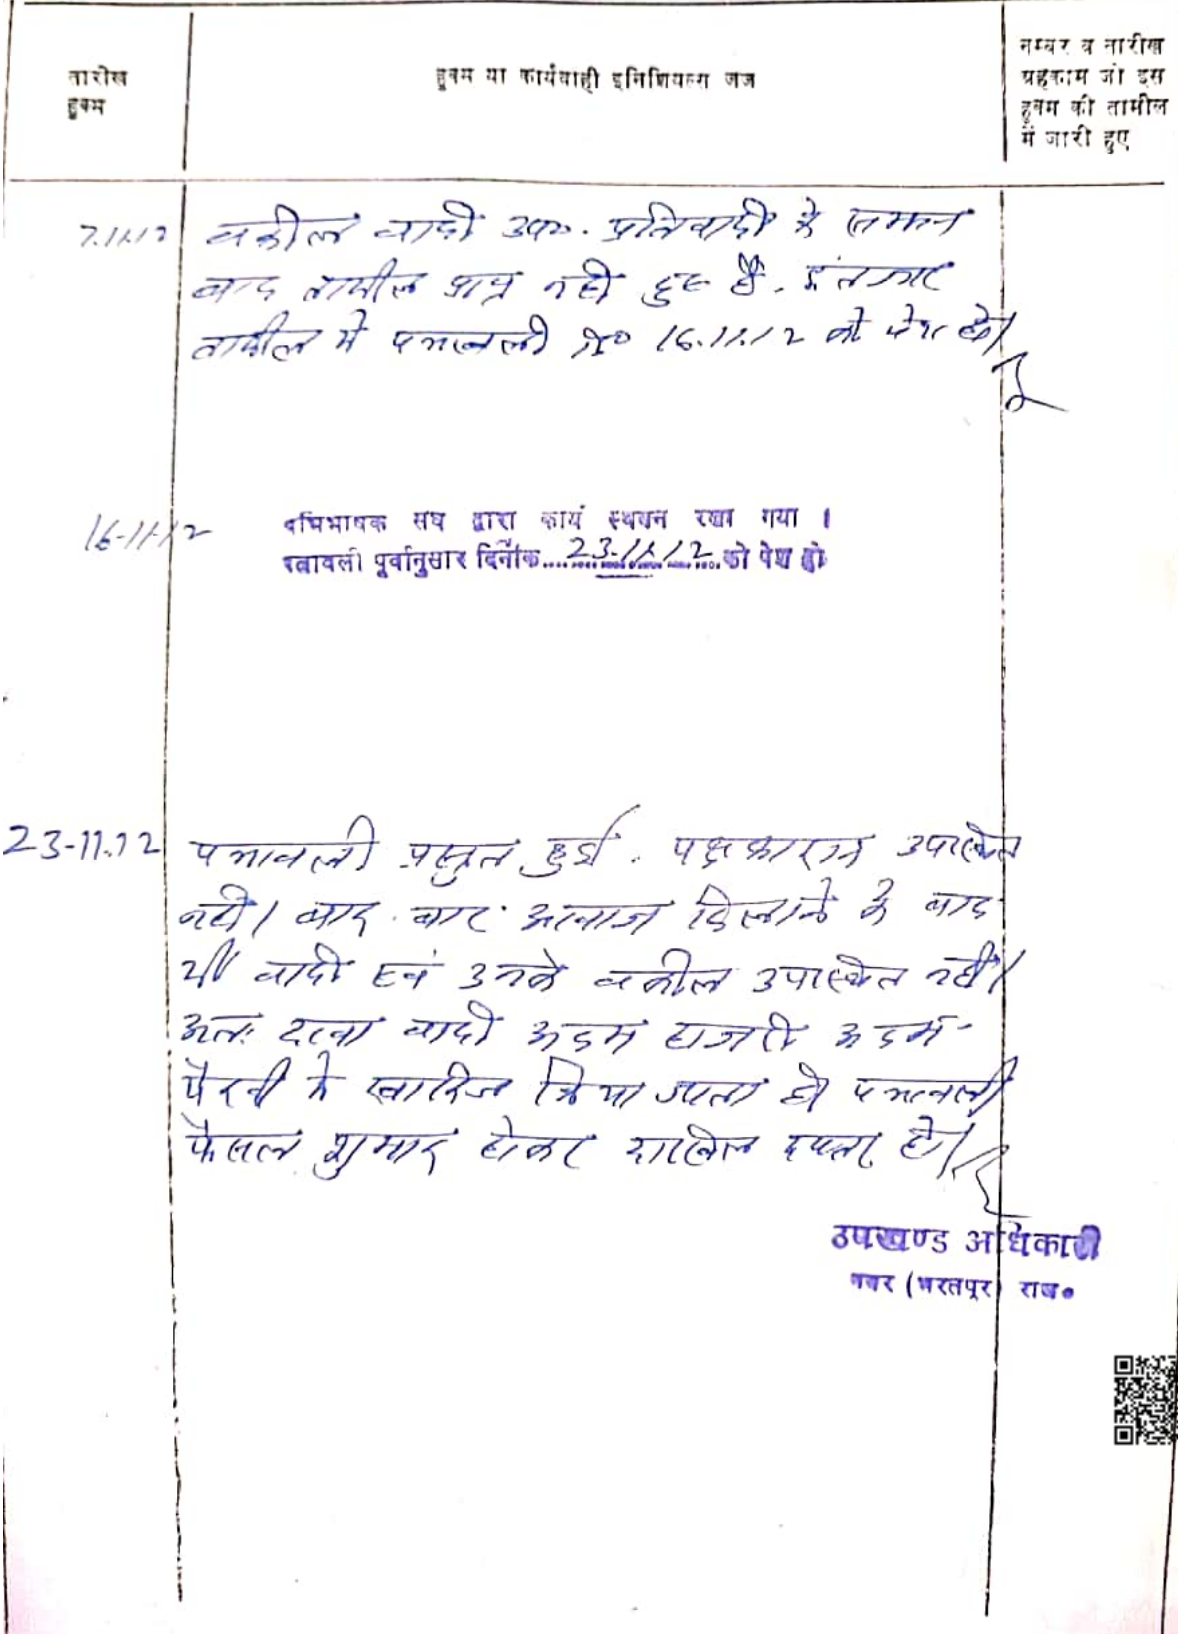 तारीख
हुक्म
हुक्म या कार्यवाही इनिशियल्स जज
नम्बर व तारीख
अहकाम जो इस
हुक्म की तामील
में जारी हुए
7.11.12
वकील वादी उप०. प्रतिवादी के सम्मन
बाद तामील प्राप्त नही हुए है. इंतजार
तामील मे पत्रावली दि० 16.11.12 को पेश हो।
16-11-12
अभिभाषक संघ द्वारा कार्य स्थगन रखा गया ।
पत्रावली पूर्वानुसार दिनाँक....23-11-12....को पेश हो
23-11.12
पत्रावली प्रस्तुत हुई. पक्षकारान उपस्थित
नही। बार. बार. आवाज दिलाने के बाद
भी वादी एवं उनके वकील उपस्थित नही।
अतः दावा वादी अदम हाजरी अदम-
पैरवी मे खारिज किया जाता है। पत्रावली
फैसल शुमार होकर दाखिल दफ्तर हो।
उपखण्ड अधिकारी
नगर (भरतपुर) राज०